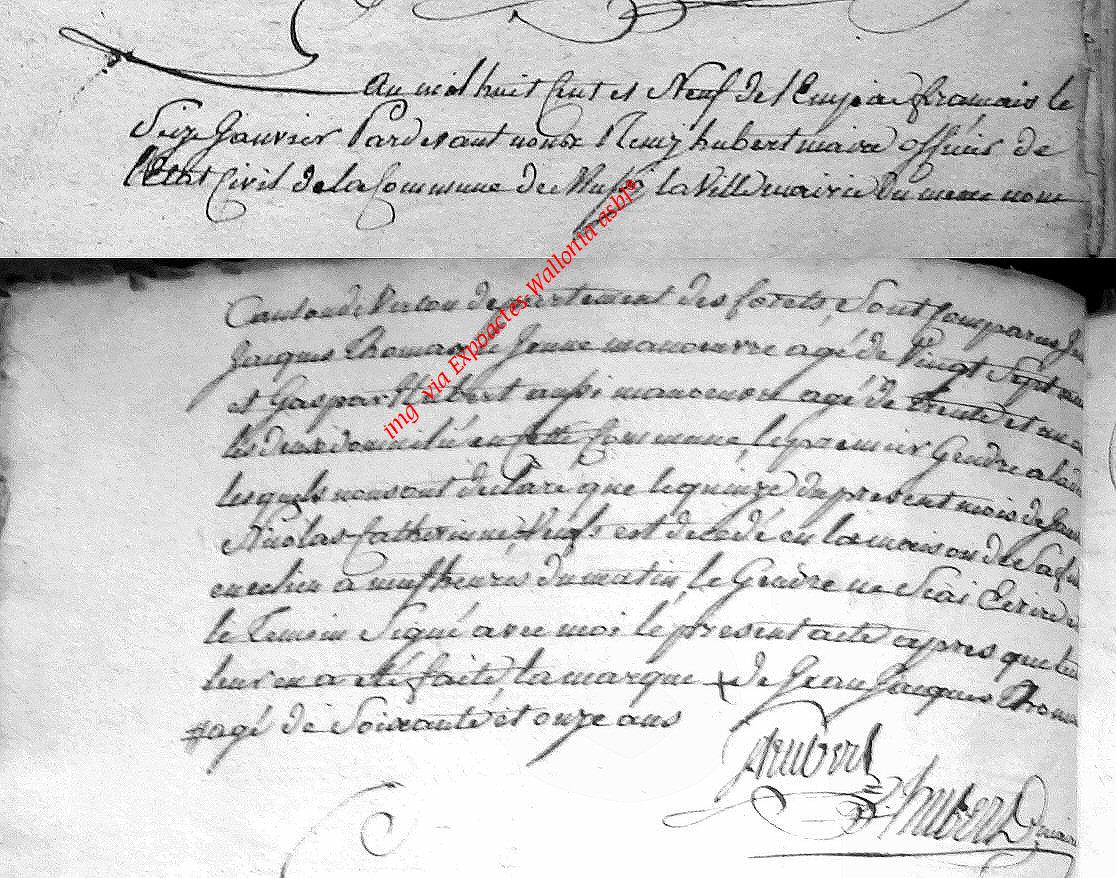 An mil huit Cent et Neuf de l'Empire français le
Seize Janvier Pardevant nous Remy hubert maire officier de
l'Etat Civil de la Commune de la Ville mairie du meme nom
img via Expoactes-Wallonia asbl
Canton de Virton departement des forets, Sont Comparus
Jacques Thomas le Jeune manoeuvre agé de Vingt Sept
et Gaspar Hubert aussi manoeuvre agé de trente et un
les deux domicilié en Cette Commune, le premier Gendre a la
lesquels nous ont declaré que le quinze du present mois de
Nicolas Catherinne est decedé en la maison de Sa
en ce lieu a neuf heures du matin, le Gendre ne Scai Ecrire
le Temoin Signé avec moi le present acte apres que
leur en a eté faite, la marque + de Jean Jacques
# agé de Soixante et onze ans
Hubert
hubert maire